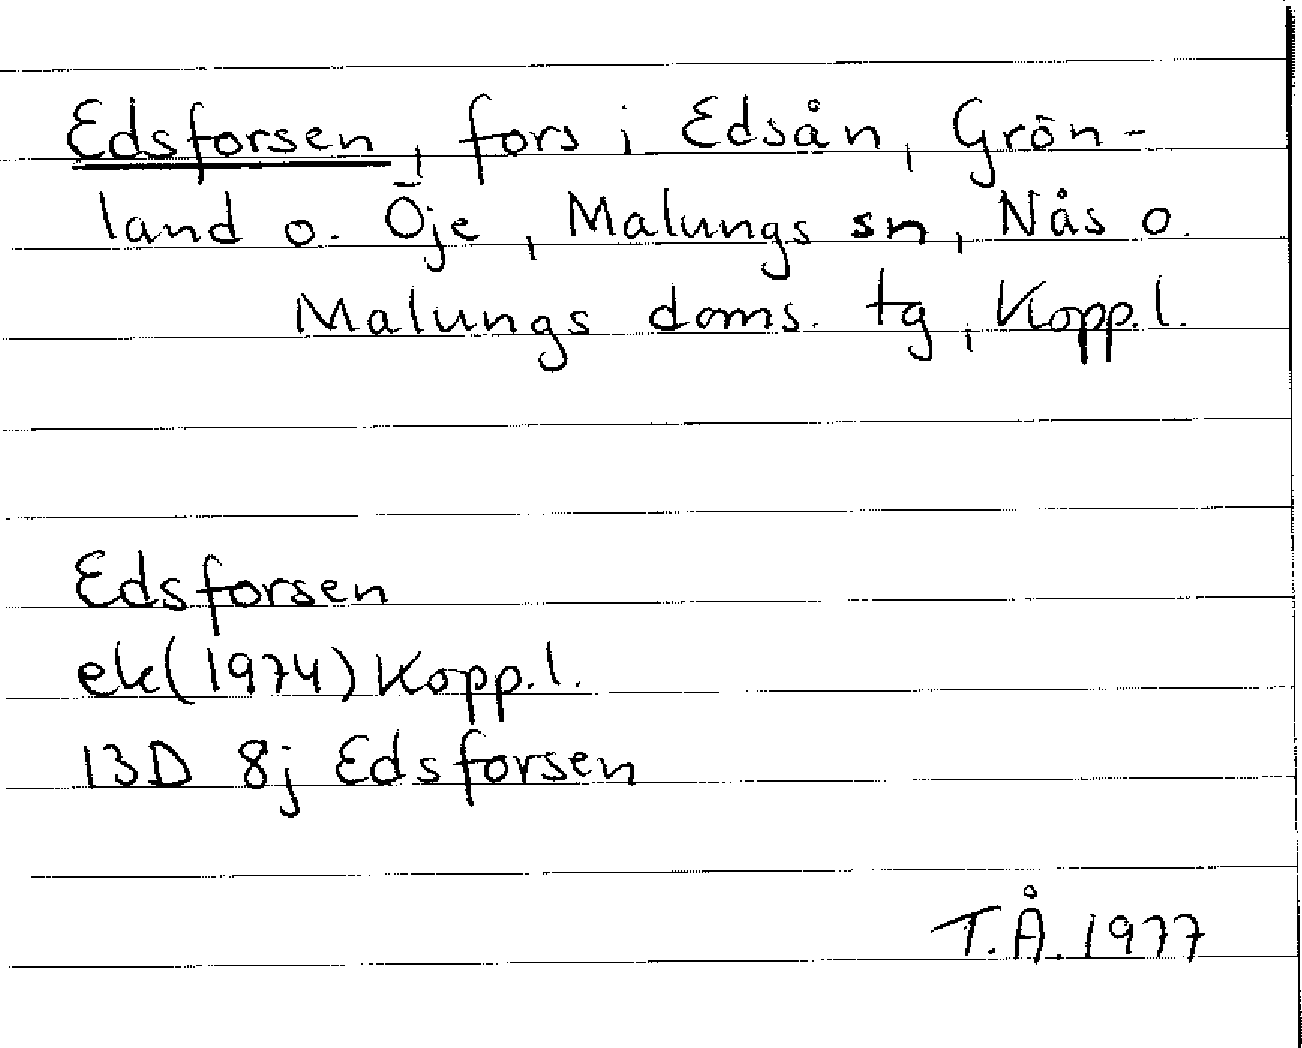 Edsforsen, fors i Edsån, Grön-
land o. Öje, Malungs sn, Nås o.
Malungs doms. tg, Kopp.l.
Edsforsen
ek(1974) Kopp.l.
13D 8j Edsforsen
T.Å. 1977